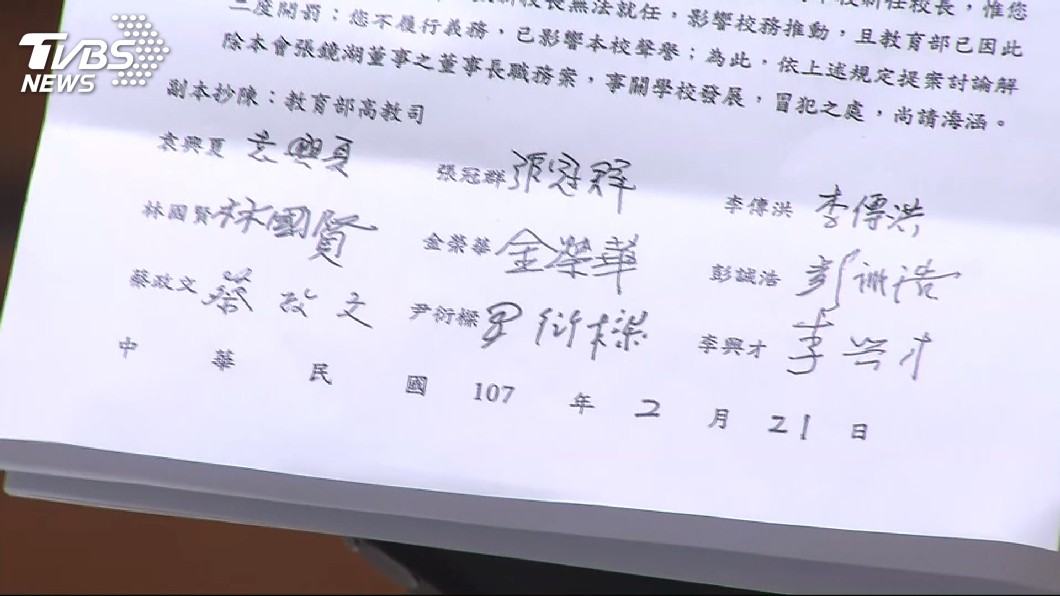 TVBS
NEWS
校長無法就任，影響校務推動，且教育部已因此
三度開罰；您不履行義務，已影響本校聲譽；為此，依上述規定提案討論解
除本會張鏡湖董事之董事長職務案，事關學校發展，冒犯之處，尚請海涵。
副本抄陳：教育部高教司
袁興夏 袁興夏 張冠群 張冠群 李傳洪 李傳洪
林國賢 林國賢 金榮華 金榮華 彭誠浩 彭誠浩
蔡政文 蔡政文 尹衍樑 尹衍樑 李興才 李興才
中華民國 107 年 2 月 21 日